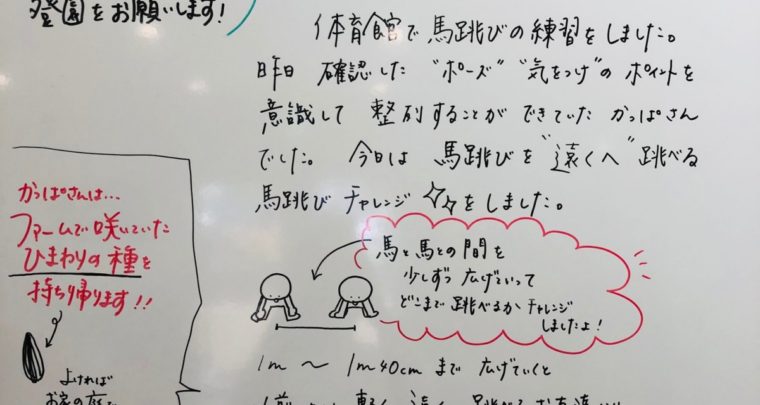 登園をお願いします!
体育館で馬跳びの練習をしました。
昨日 確認した "ポーズ" "気をつけ"の ポイントを
意識して 整列することが できていた かっぱさん
でした。 今日は 馬跳びを "遠くへ" 跳べる
馬跳び チャレンジ をしました。
馬と馬との間を
少しずつ 広げていって
どこまで 跳べるか チャレンジ
しましたよ!
1m 〜 1m40cm まで 広げていくと
かっぱさんは…
ファームで咲いていた
ひまわりの種を
持ち帰ります!!
よければ
お家の庭